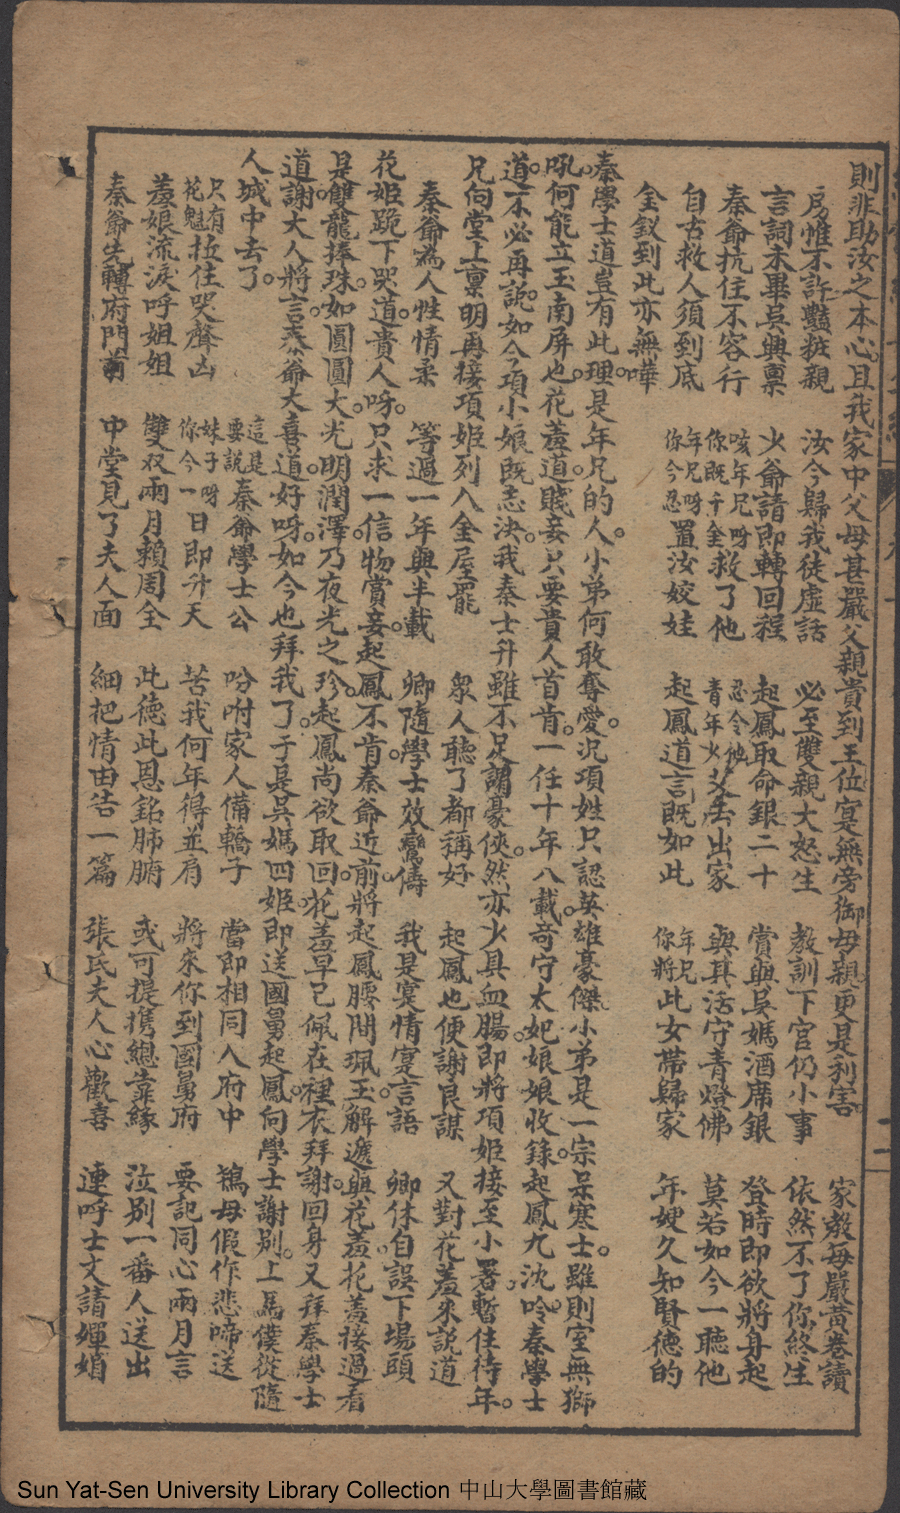 則非助汝之本心。且我家中父母甚嚴父親貴到王位寔無旁御母親更是利害。家教每嚴黃卷讀
房惟不許豔粧親 汝今歸我徒虛話 必至雙親大怒生 教訓下官仍小事 依然不了你終生
言詞未畢吳興稟 少爺請即轉回程 起鳳取命銀二十 賞與吳媽酒席銀 登時即欲將身起
秦爺抗住不容行 咳年兄呀你既千金救了他 忍令他青年少艾去出家 與其活守青燈佛 莫若如今一聽他
自古救人須到底 年兄呀你今忍置汝姣娃 起鳳道言既如此 年兄你將此女帶歸家 年嫂久知賢德的
金釵到此亦無嘩
秦學士道豈有此理。是年兄的人。小弟何敢奪愛。況項姓只認英雄豪傑小弟是一宗呆寒士。雖則室無獅
吼何能立玉南屏也。花羞道。賤妾只要貴人首肯。一任十年八載。苛守太妃娘娘收錄。起鳳九沈吟。秦學士
道。不必再說。如今項小娘既志決。我秦士升雖不足謂豪俠。然亦少具血腸。即將項姬接至小署。暫住待年。
兄向堂上稟明再接項姬列入金屋罷
秦爺為人性情柔 等過一年與半載 眾人聽了都稱好 起鳳也便謝良謀 又對花羞來說道
卿隨學士效鸞儔 我是寔情寔言語 卿休自誤下場頭
花姬跪下哭道。貴人呀。只求一信物賞妾。起鳳不肯。秦爺近前。將起鳳腰間珮玉解遞與花羞。花羞接過看
是雙龍捧珠。如圓圓大。光明潤澤。乃夜光之珍。起鳳尚欲取回。花羞早已佩在裡衣拜謝。回身又拜秦學士
道謝大人將言。秦爺大喜道。好呀。如今也拜我了。于是吳媽四姬即送國舅起鳳。向學士謝別。上馬僕從隨
人城中去了。
只有花魁拉住哭聲凶 這是要說秦爺學士公 吩咐家人備轎子 當即相同入府中 鴇母假作悲啼送
羞娘流淚呼姐姐 妹子呀你今一日即升天 苦我何年得並肩 將來你到國舅府 要記同心兩月言
雙雙兩月賴周全 此德此恩銘肺腑 或可提攜總靠緣 泣別一番人送出
秦爺先轉府門前 中堂見了夫人面 細把情由告一篇 張氏夫人心歡喜 連呼士文請嬋娟
Sun Yat-Sen University Library Collection 中山大學圖書館藏